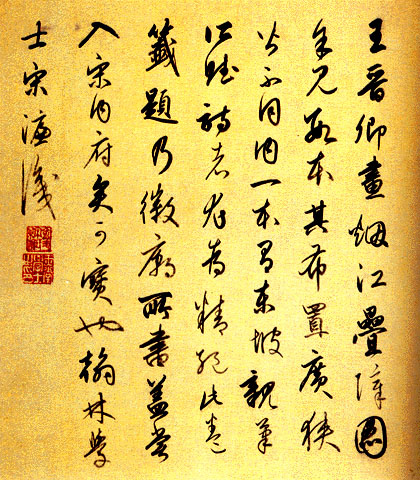 王晉卿畫烟江疊嶂圖
余見數本其布置廣狹
皆不同内一本有東坡親筆
所賦詩者尤為精絕此卷
籤題乃徽廟所書蓋嘗
入宋内府矣可寶也翰林學
士宋濂識